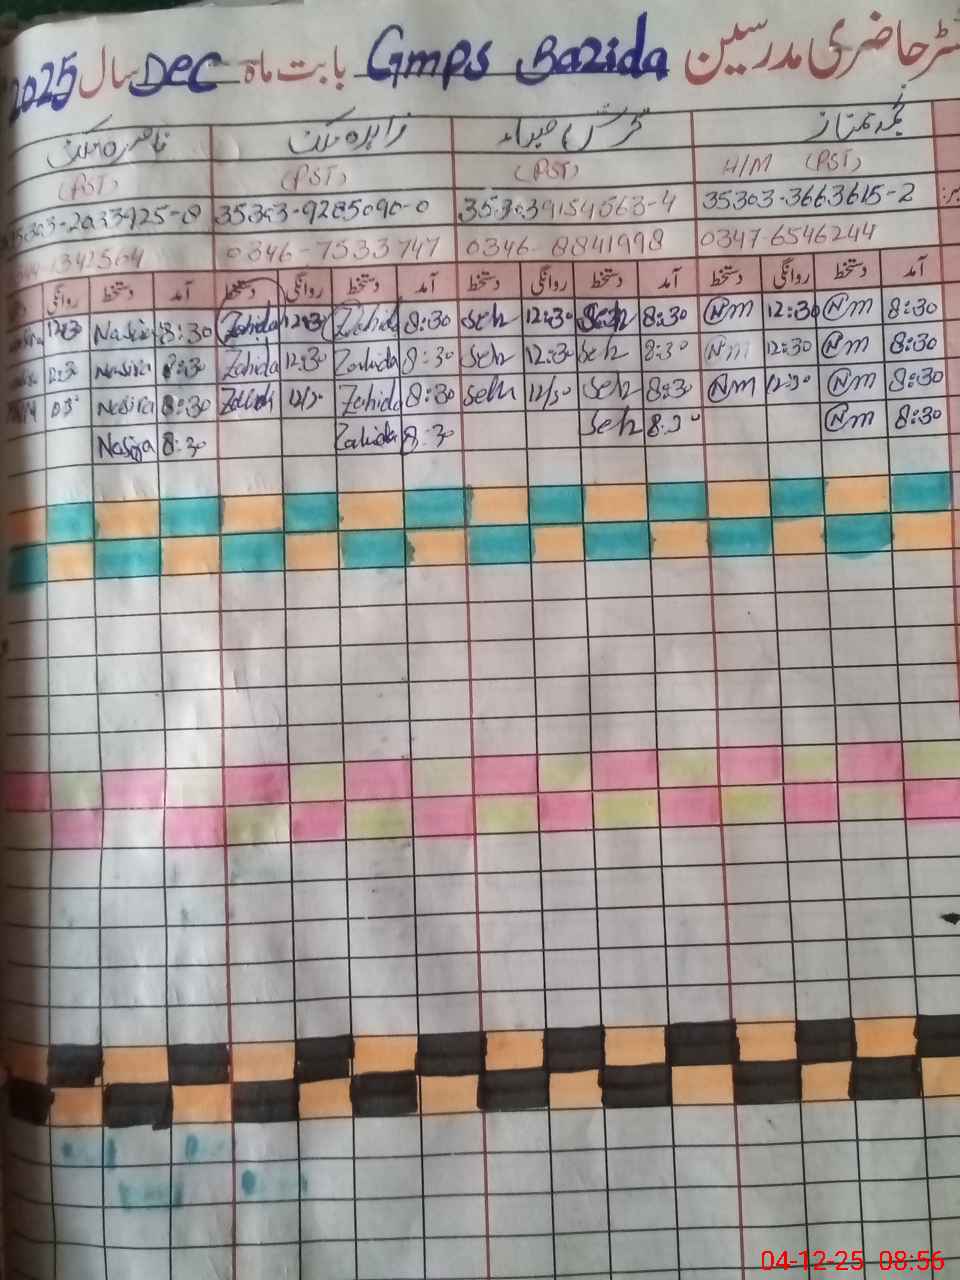 رجسٹر حاضری مدرسین Gmps Bazida بابت ماہ Dec سال 2025
نجمہ ممتاز زاہدہ ملک ناصرہ ملک
H/M (PST) (PST) (PST) (PST)
35303-3663615-2 35303-9285090-0
0347-6546244 0346-8841998 0346-7533747
آمد دستخط روانگی دستخط آمد دستخط روانگی دستخط آمد دستخط روانگی دستخط آمد دستخط روانگی
8:30 Nm 12:30 Nm 8:30 Seh 12:30 Seh 8:30 Zahida 12:30 Zahida 8:30 Nasira 12:30
8:30 Nm 12:30 Nm 8:30 Seh 12:30 Seh 8:30 Zahida 12:30 Zahida 8:30 Nasira 12:30
8:30 Nm 12:30 Nm 8:30 Seh 12/30 Seh 8:30 Zahida Zahida 8:30 Nasira
8:30 Nm 8:30 Seh 8:30 Zahida 8:30 Nasira
04-12-25 08:56